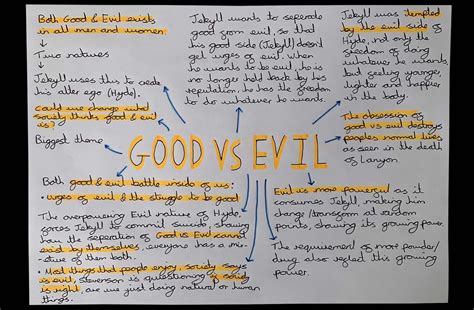 Both Good & Evil exists
in all men and women:
Two natures
Jekyll uses this to create
his alter ego (Hyde).
could we change what
society thinks good & evil
is?
Biggest theme
Jekyll wants to seperate
good from evil, so that
his good side (Jekyll) doesn't
get urges of evil. When
he wants to be evil, he is
no longer held back by his
reputation, he has the freedom
to do whatever he wants.
Jekyll was tempted
by the evil side of
Hyde, not only the
freedom of doing
whatever he wants
but feeling younger,
lighter and happier
in the body.
The obsession of
good vs evil destroys
peoples normal lives
as seen in the death
of Lanyon
GOOD VS EVIL
Both good & evil battle inside of us:
• urges of evil & the struggle to be good
The overpowering Evil nature of Hyde,
forces Jekyll to commit suicide, showing
how the seperation of Good vs Evil cannot
exist by themselves, everyone has a mix-
ture of them both.
• Most things that people enjoy, society says
is evil, stevenson is questioning if society
is right, are we just doing natural or human
things.
Evil is more powerful as it
consumes Jekyll, making him
change/transform at random
points, showing its growing power.
The requirement of more powder/
drug also reflect this growing
power.